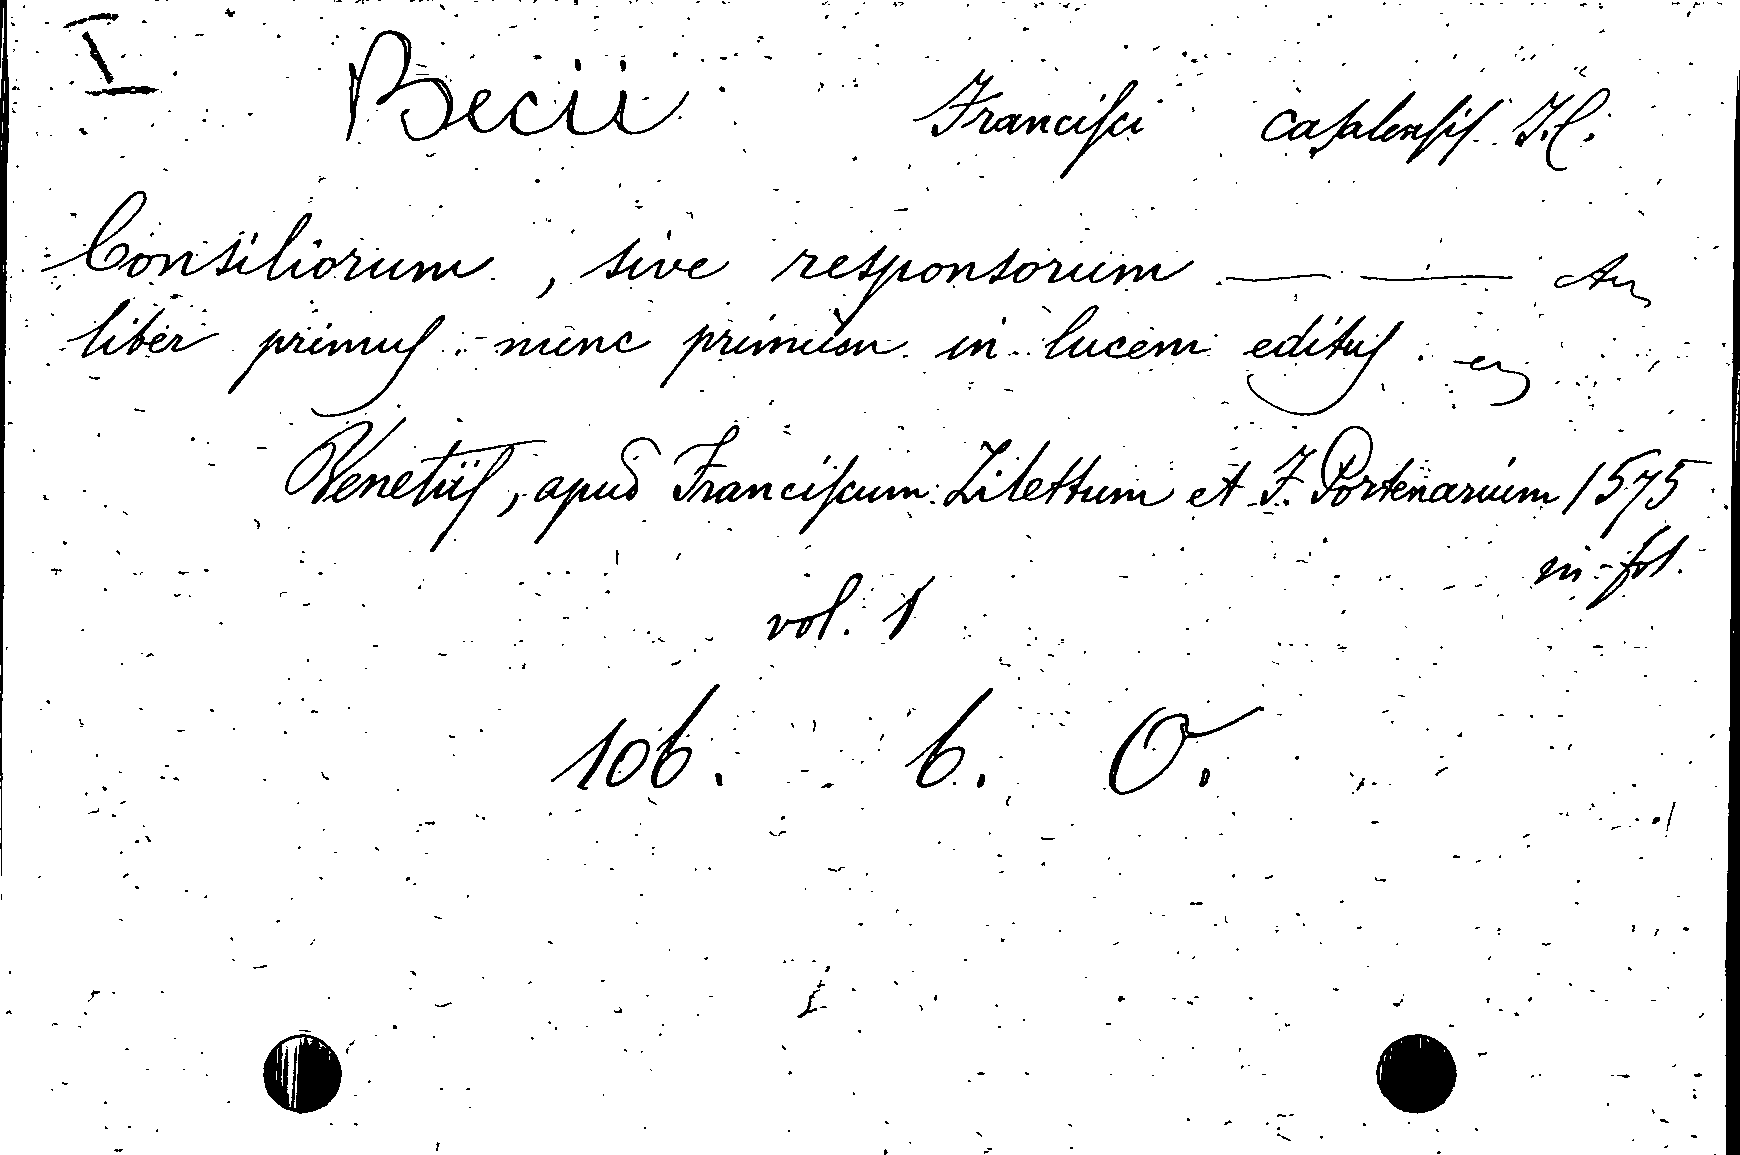 I Becii Francisci Casalensis J.C.
Consiliorum, sive responsorum — —
liber primus nunc primum in lucem editus.
Venetiis, apud Franciscum Zilettum et F. Portenarium 1575
in-fol.
vol. 1
106. 6. O.